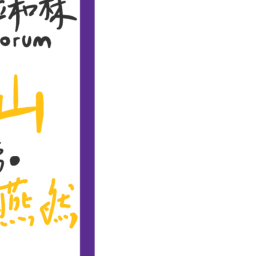 和林
orum
山
燕然